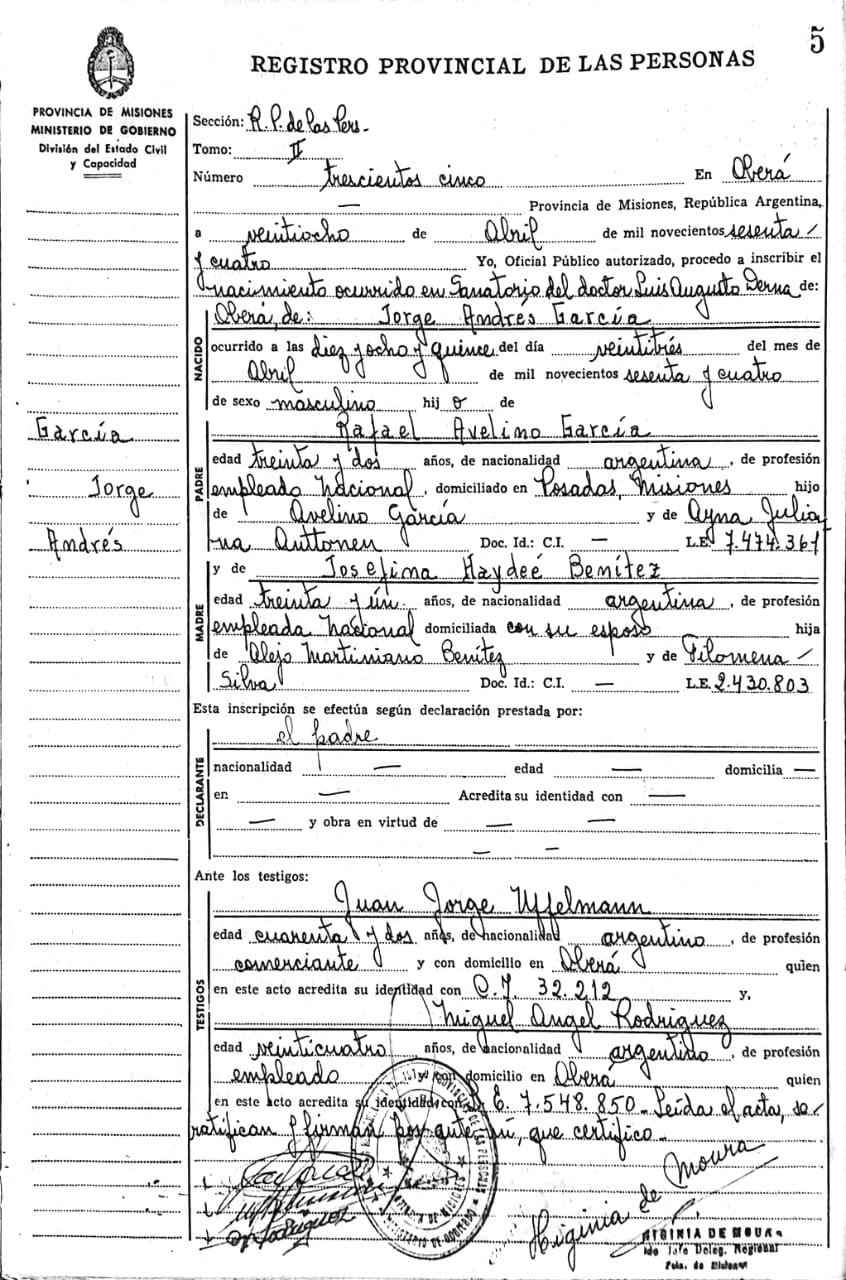 5
REGISTRO PROVINCIAL DE LAS PERSONAS
PROVINCIA DE MISIONES
MINISTERIO DE GOBIERNO
División del Estado Civil
y Capacidad
García
Jorge
Andrés
Sección: R. P. de las Pers.-
Tomo: II
Número trescientos cinco En Oberá
— Provincia de Misiones, República Argentina,
a veintiocho de Abril de mil novecientos sesenta
y cuatro Yo, Oficial Público autorizado, procedo a inscribir el
nacimiento ocurrido en Sanatorio del doctor Luis Augusto Derna de:
Oberá, de: Jorge Andrés García
NACIDO
ocurrido a las diez y ocho y quince del día veintitrés del mes de
Abril de mil novecientos sesenta y cuatro
de sexo masculino hijo de
Rafael Avelino García
PADRE
edad treinta y dos años, de nacionalidad argentina, de profesión
empleado nacional, domiciliado en Posadas, Misiones hijo
de Avelino García y de Ayna Julia
na Auttonen Doc. Id.: C.I. — L.E. 7.474.361
y de Josefina Haydeé Benítez
MADRE
edad treinta y ún años, de nacionalidad argentina, de profesión
empleada nacional domiciliada con su esposo hija
de Alejo Martiniano Benítez y de Filomena
Silva Doc. Id.: C.I. — L.E. 2.430.803
Esta inscripción se efectúa según declaración prestada por:
el padre
DECLARANTE
nacionalidad — edad — domicilia —
en — Acredita su identidad con —
— y obra en virtud de — —
— —
Ante los testigos:
Juan Jorge Uffelmann
TESTIGOS
edad cuarenta y dos años, de nacionalidad argentino, de profesión
comerciante y con domicilio en Oberá quien
en este acto acredita su identidad con C.I. 32.212 y,
Miguel Angel Rodriguez
edad veinticuatro años, de nacionalidad argentino, de profesión
empleado y con domicilio en Oberá quien
en este acto acredita su identidad con L.E. 7.548.850 - Leída el acta, se
ratifican y firman por ante mí, que certifico.-
Higinia de Moura
HIGINIA DE MOURA